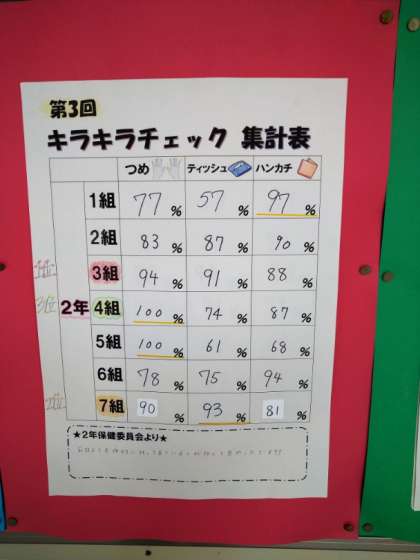 第3回
キラキラチェック 集計表
つめ ティッシュ ハンカチ
1組 77% 57% 97%
2組 83% 87% 90%
1位 3組 94% 91% 88%
3位 2年 4組 100% 74% 87%
5組 100% 61% 68%
6組 78% 75% 94%
2位 7組 90% 93% 81%
★2年保健委員会より★